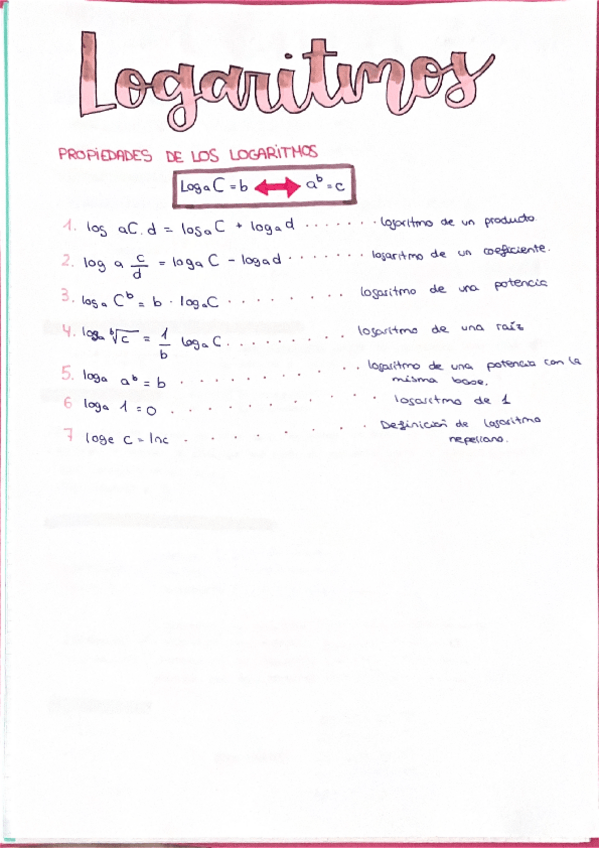 Logaritmos
PROPIEDADES DE LOS LOGARITMOS
Loga C = b ↔ a^b = c
1. log aC.d = logaC + logad ....... logaritmo de un producto
2. log a c/d = logaC - logad ....... logaritmo de un coeficiente.
3. loga C^b = b · logaC ........ logaritmo de una potencia
4. loga ᵇ√c = 1/b logaC ........ logaritmo de una raíz
5. loga a^b = b .......... logaritmo de una potencia con la
misma base.
6 loga 1 = 0 .......... logaritmo de 1
7 loge c = lnc ......... Definición de logaritmo
nepeliano.